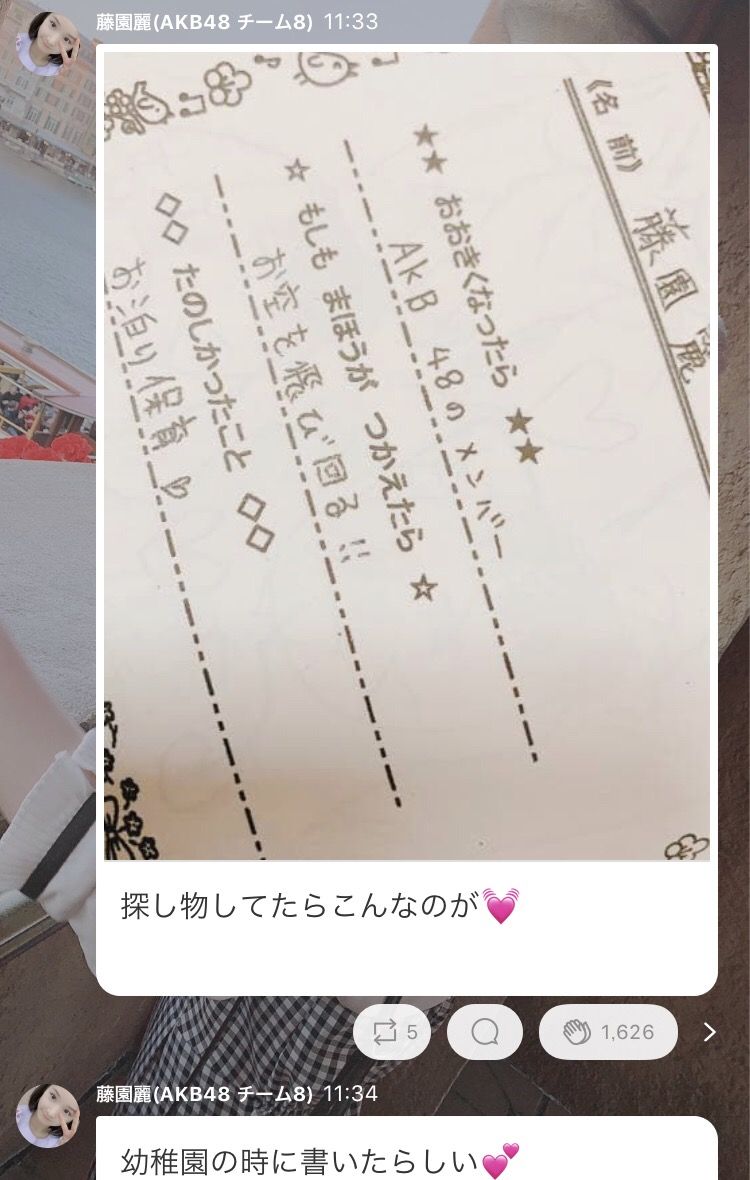 藤園麗(AKB48 チーム8) 11:33
《名 前》 藤園麗
★★ おおきくなったら ★★
AkB 48の メンバー
☆ もしも まほうが つかえたら ☆
お空を飛び回る!!
◇◇ たのしかったこと ◇◇
お泊り保育♡
探し物してたらこんなのが💓
5
1,626
藤園麗(AKB48 チーム8) 11:34
幼稚園の時に書いたらしい💕